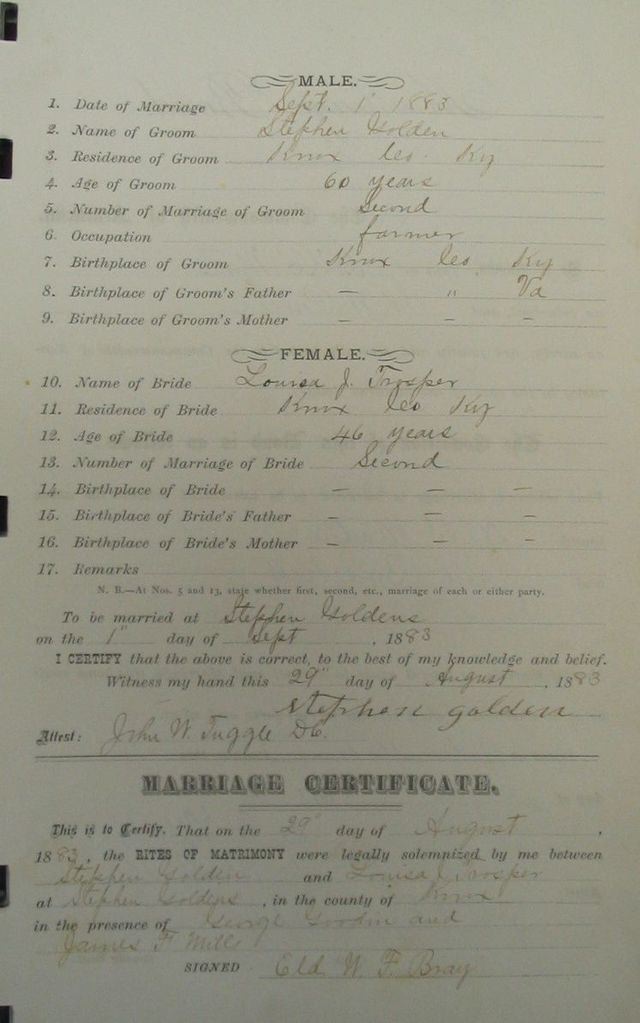 MALE.
1. Date of Marriage Sept. 1" 1883
2. Name of Groom Stephen Golden
3. Residence of Groom Knox Co. Ky
4. Age of Groom 60 years
5. Number of Marriage of Groom Second
6. Occupation farmer
7. Birthplace of Groom Knox Co Ky
8. Birthplace of Groom's Father — " Va
9. Birthplace of Groom's Mother — — —
FEMALE.
10. Name of Bride Louisa J. Trosper
11. Residence of Bride Knox Co Ky
12. Age of Bride 46 years
13. Number of Marriage of Bride Second
14. Birthplace of Bride — — —
15. Birthplace of Bride's Father — — —
16. Birthplace of Bride's Mother — — —
17. Remarks
N. B.—At Nos. 5 and 13, state whether first, second, etc., marriage of each or either party.
To be married at Stephen Goldens
on the 1" day of Sept, 1883
I CERTIFY that the above is correct, to the best of my knowledge and belief.
Witness my hand this 29" day of August, 1883
Stephen golden
Attest: John W. Tuggle D.C.
MARRIAGE CERTIFICATE.
This is to Certify, That on the 29" day of August,
1883, the RITES OF MATRIMONY were legally solemnized by me between
Stephen Golden and Louisa J Trosper
at Stephen Goldens, in the county of Knox
in the presence of George Goodin and
James F Mills
SIGNED Eld W. F. Bray